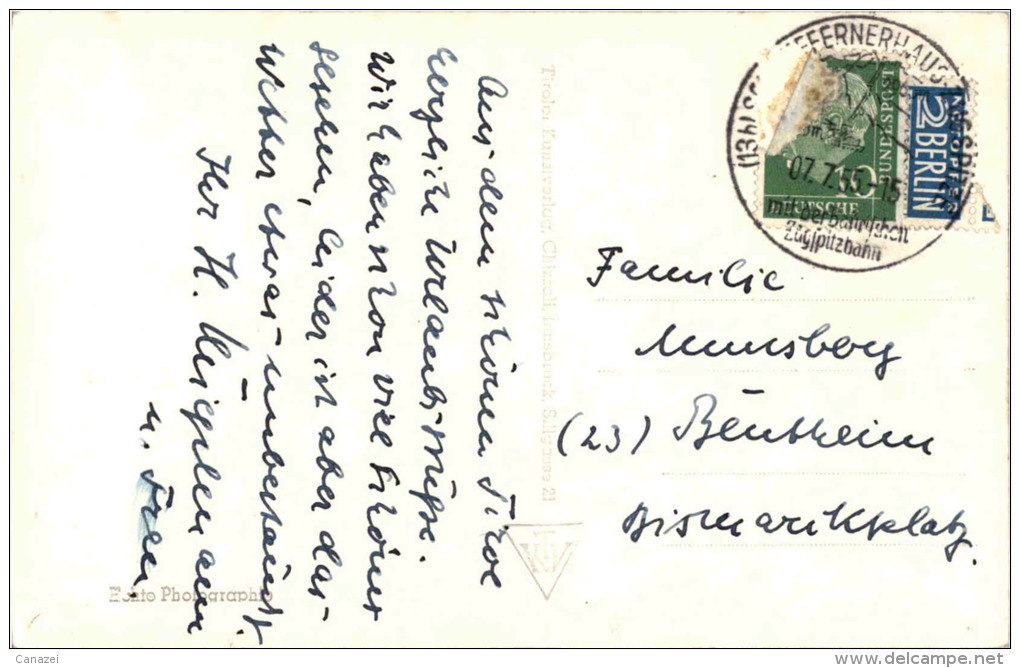 Aus dem schönen Tirol
herzliche Urlaubsgrüße.
Wir haben schon viel Schönes
gesehen, leider ist aber das
Wetter etwas unbeständig.
Ihr H.
u. Frau
Tiroler Kunstverlag, Chizzali, Innsbruck, Sillgasse 21
TKV
Echte Photographie
(13b) SCHNEEFERNERHAUS ZUGSPITZE
07.7.55-15
mit der bayrischen
Zugspitzbahn
DEUTSCHE
BUNDESPOST
10
NOTOPFER
2 BERLIN
Familie
(23) Bentheim
Bismarckplatz.
Canazei
delcampe.net